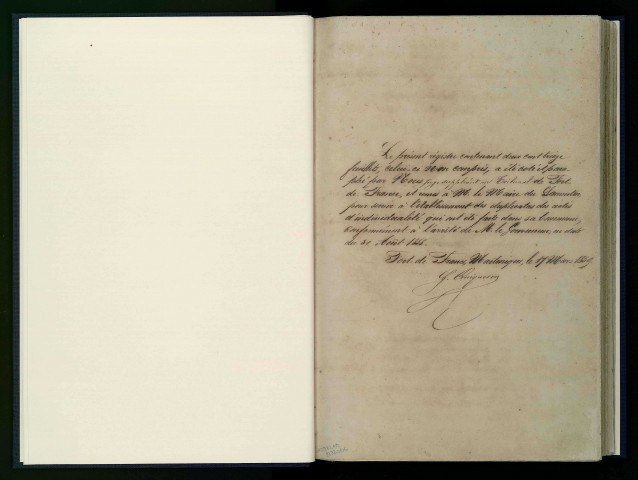 Le présent registre contenant deux cent treize
feuillets, celui-ci non compris, a été coté et para-
phé par Nous juge suppléant au Tribunal de Fort
de France, et remis à M. le Maire du
pour servir à l'établissement des duplicatas des actes
d'individualité qui ont été faits dans sa commune,
conformément à l'arrêté de M. le Gouverneur, en date
du 31 Août
Fort de France, Martinique, le 17 Mars